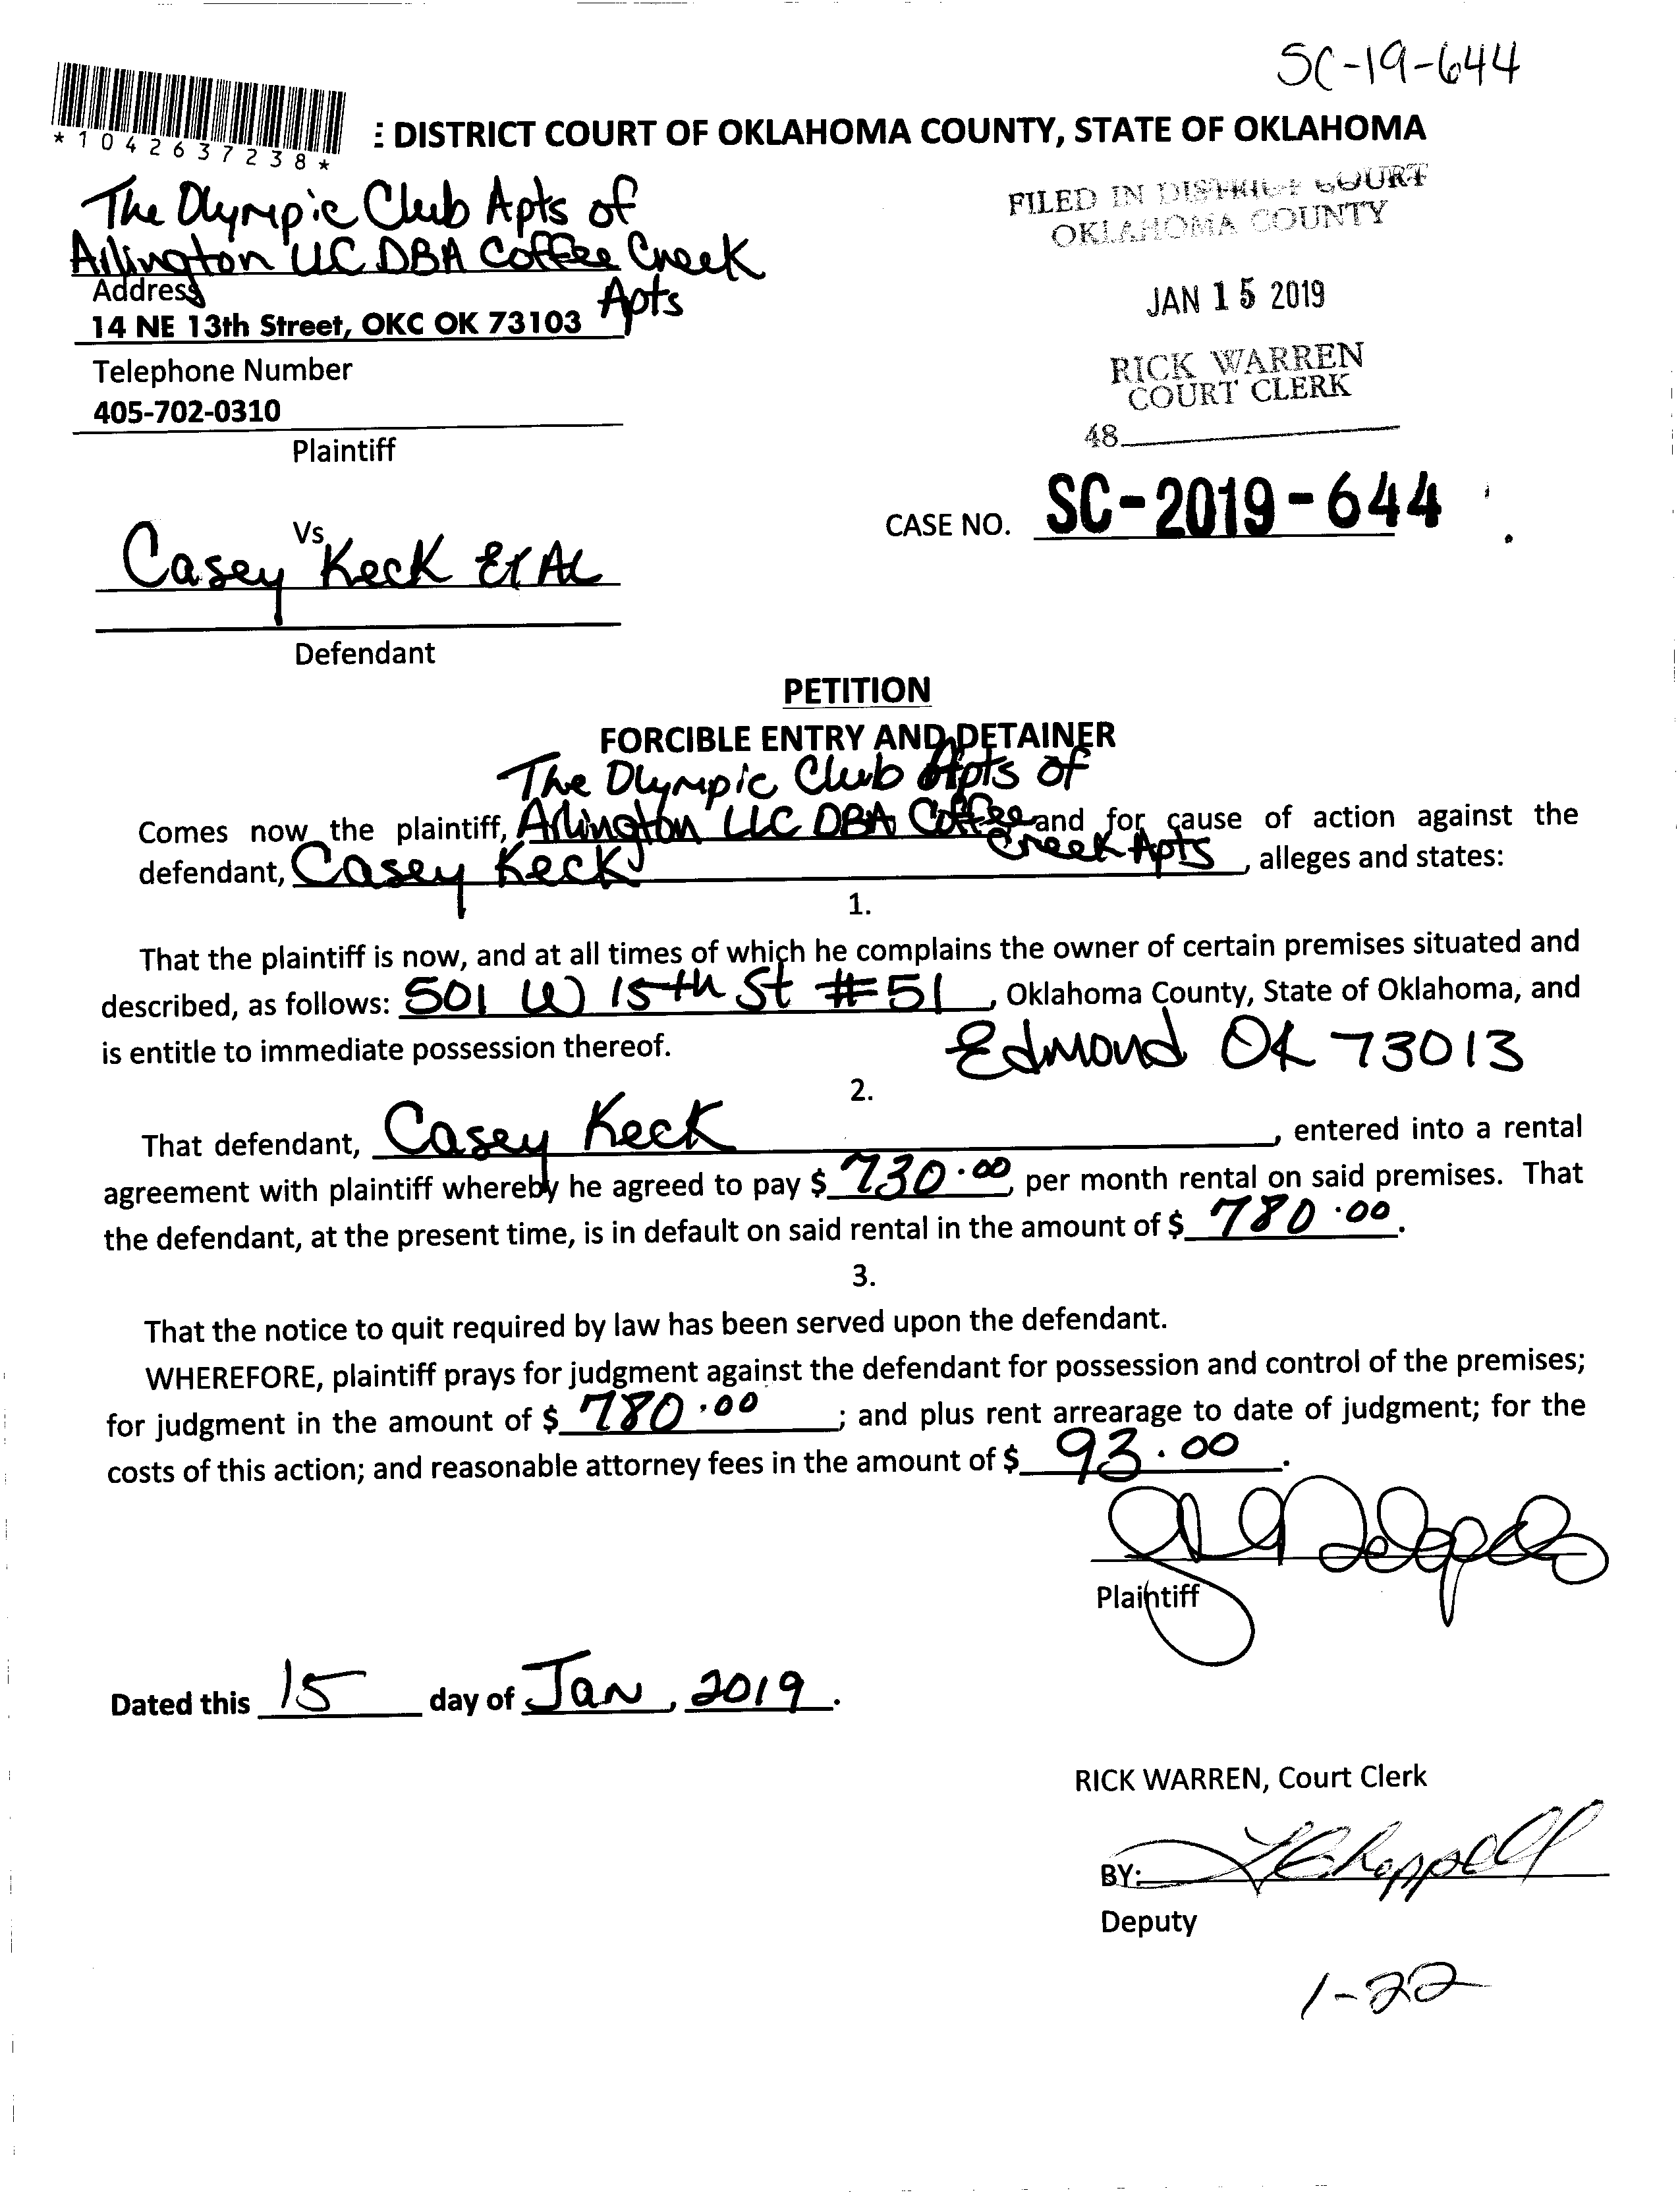 SC-19-644
*1042637238*
: DISTRICT COURT OF OKLAHOMA COUNTY, STATE OF OKLAHOMA
The Olympic Club Apts of
Arlington LLC DBA Coffee Creek
Apts
Address
14 NE 13th Street, OKC OK 73103
Telephone Number
405-702-0310
Plaintiff
FILED IN DISTRICT COURT
OKLAHOMA COUNTY
JAN 15 2019
RICK WARREN
COURT CLERK
48
CASE NO. SC-2019-644
Vs
Casey Keck Et Al
Defendant
PETITION
FORCIBLE ENTRY AND DETAINER
The Olympic Club Apts of
Comes now the plaintiff, Arlington LLC DBA Coffee and for cause of action against the
Creek Apts
defendant, Casey Keck, alleges and states:
1.
That the plaintiff is now, and at all times of which he complains the owner of certain premises situated and
described, as follows: 501 W 15th St #51, Oklahoma County, State of Oklahoma, and
is entitle to immediate possession thereof. Edmond OK 73013
2.
That defendant, Casey Keck, entered into a rental
agreement with plaintiff whereby he agreed to pay $ 730.00, per month rental on said premises. That
the defendant, at the present time, is in default on said rental in the amount of $ 780.00.
3.
That the notice to quit required by law has been served upon the defendant.
WHEREFORE, plaintiff prays for judgment against the defendant for possession and control of the premises;
for judgment in the amount of $ 780.00; and plus rent arrearage to date of judgment; for the
costs of this action; and reasonable attorney fees in the amount of $ 93.00.
Plaintiff
Dated this 15 day of Jan, 2019.
RICK WARREN, Court Clerk
BY:
Deputy
1-22